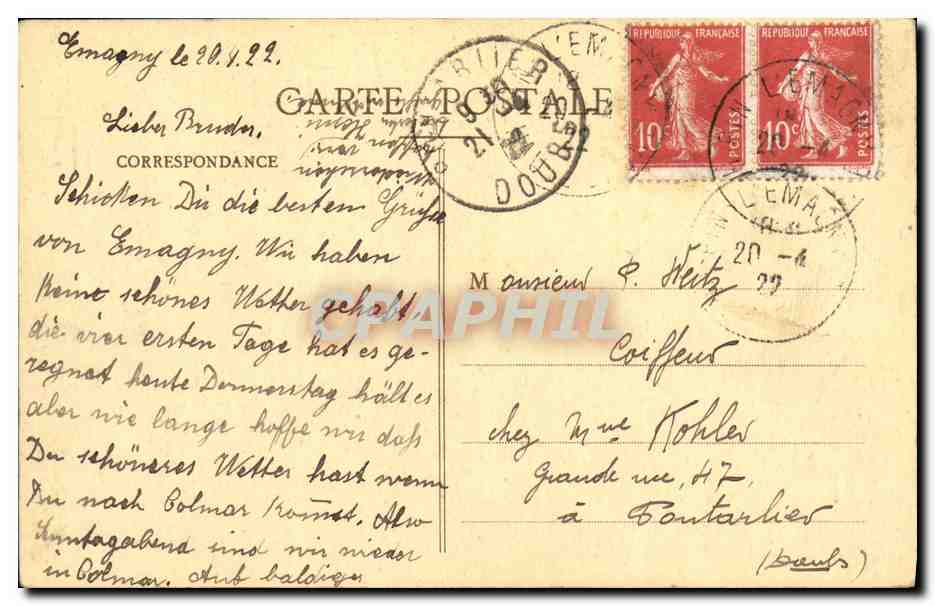 Emagny le 20.4.22.
CARTE POSTALE
Lieber Bruder.
CORRESPONDANCE
Schicken Dir die besten Grüße
von Emagny. Wir haben
keine schönes Wetter gehabt,
die vier ersten Tage hat es ge-
regnet heute Donnerstag hält es
aber wie lange hoffe wir daß
Du schöneres Wetter hast wenn
Du nach Colmar kommst. Also
Sonntagabend sind wir wieder
in Colmar. Auf baldiges
Wiedersehen
PONTARLIER
21 -4
22
DOUBS
REPUBLIQUE FRANÇAISE
10c
POSTES
REPUBLIQUE FRANÇAISE
10c
POSTES
L'EMAGNY
20 -4
22
Monsieur P. Weitz
Coiffeur
chez Mme Kohler
Grande rue, 47
à Pontarlier
(Doubs)
CPAPHIL